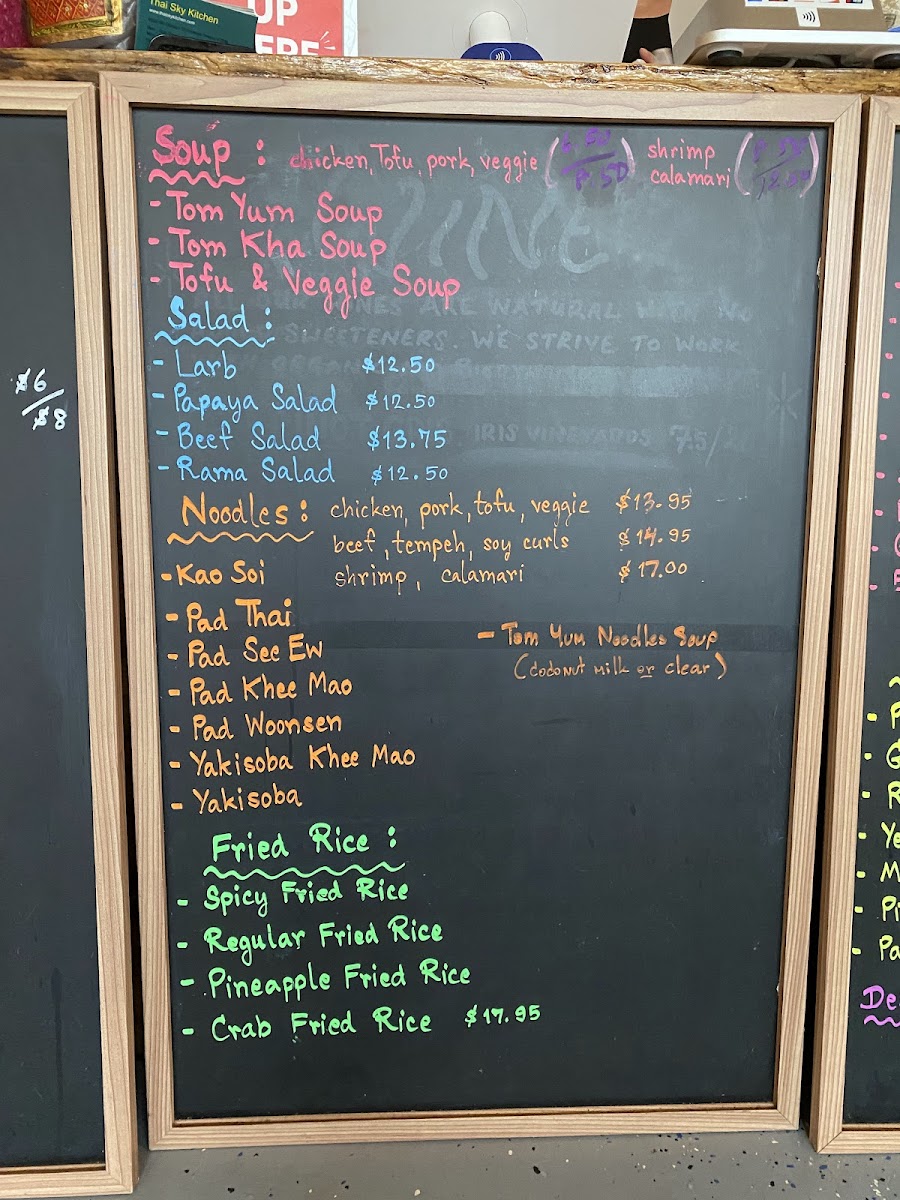 Thai Sky Kitchen
www.thaiskykitchen.com
UP
ERE
Soup : chicken, Tofu, pork, veggie
shrimp
calamari
- Tom Yum Soup
- Tom Kha Soup
- Tofu & Veggie Soup
Salad :
- Larb $12.50
- Papaya Salad $12.50
- Beef Salad $13.75
- Rama Salad $12.50
ARE NATURAL WITH NO
SWEETENERS. WE STRIVE TO WORK
IRIS VINEYARDS
Noodles : chicken, pork, tofu, veggie $13.95
beef, tempeh, soy curls $14.95
- Kao Soi shrimp, calamari $17.00
- Pad Thai
- Pad See Ew
- Pad Khee Mao
- Pad Woonsen
- Yakisoba Khee Mao
- Yakisoba
- Tom Yum Noodles Soup
(coconut milk or clear)
Fried Rice :
- Spicy Fried Rice
- Regular Fried Rice
- Pineapple Fried Rice
- Crab Fried Rice $17.95
$6
$8